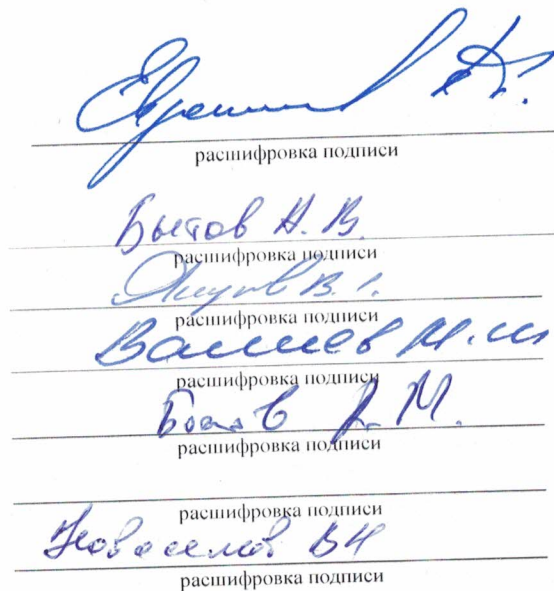 расшифровка подписи
Бытов Н. В.
расшифровка подписи
В.
расшифровка подписи
Валиев М.Ш
расшифровка подписи
М.
расшифровка подписи
расшифровка подписи
Новоселов ВН
расшифровка подписи